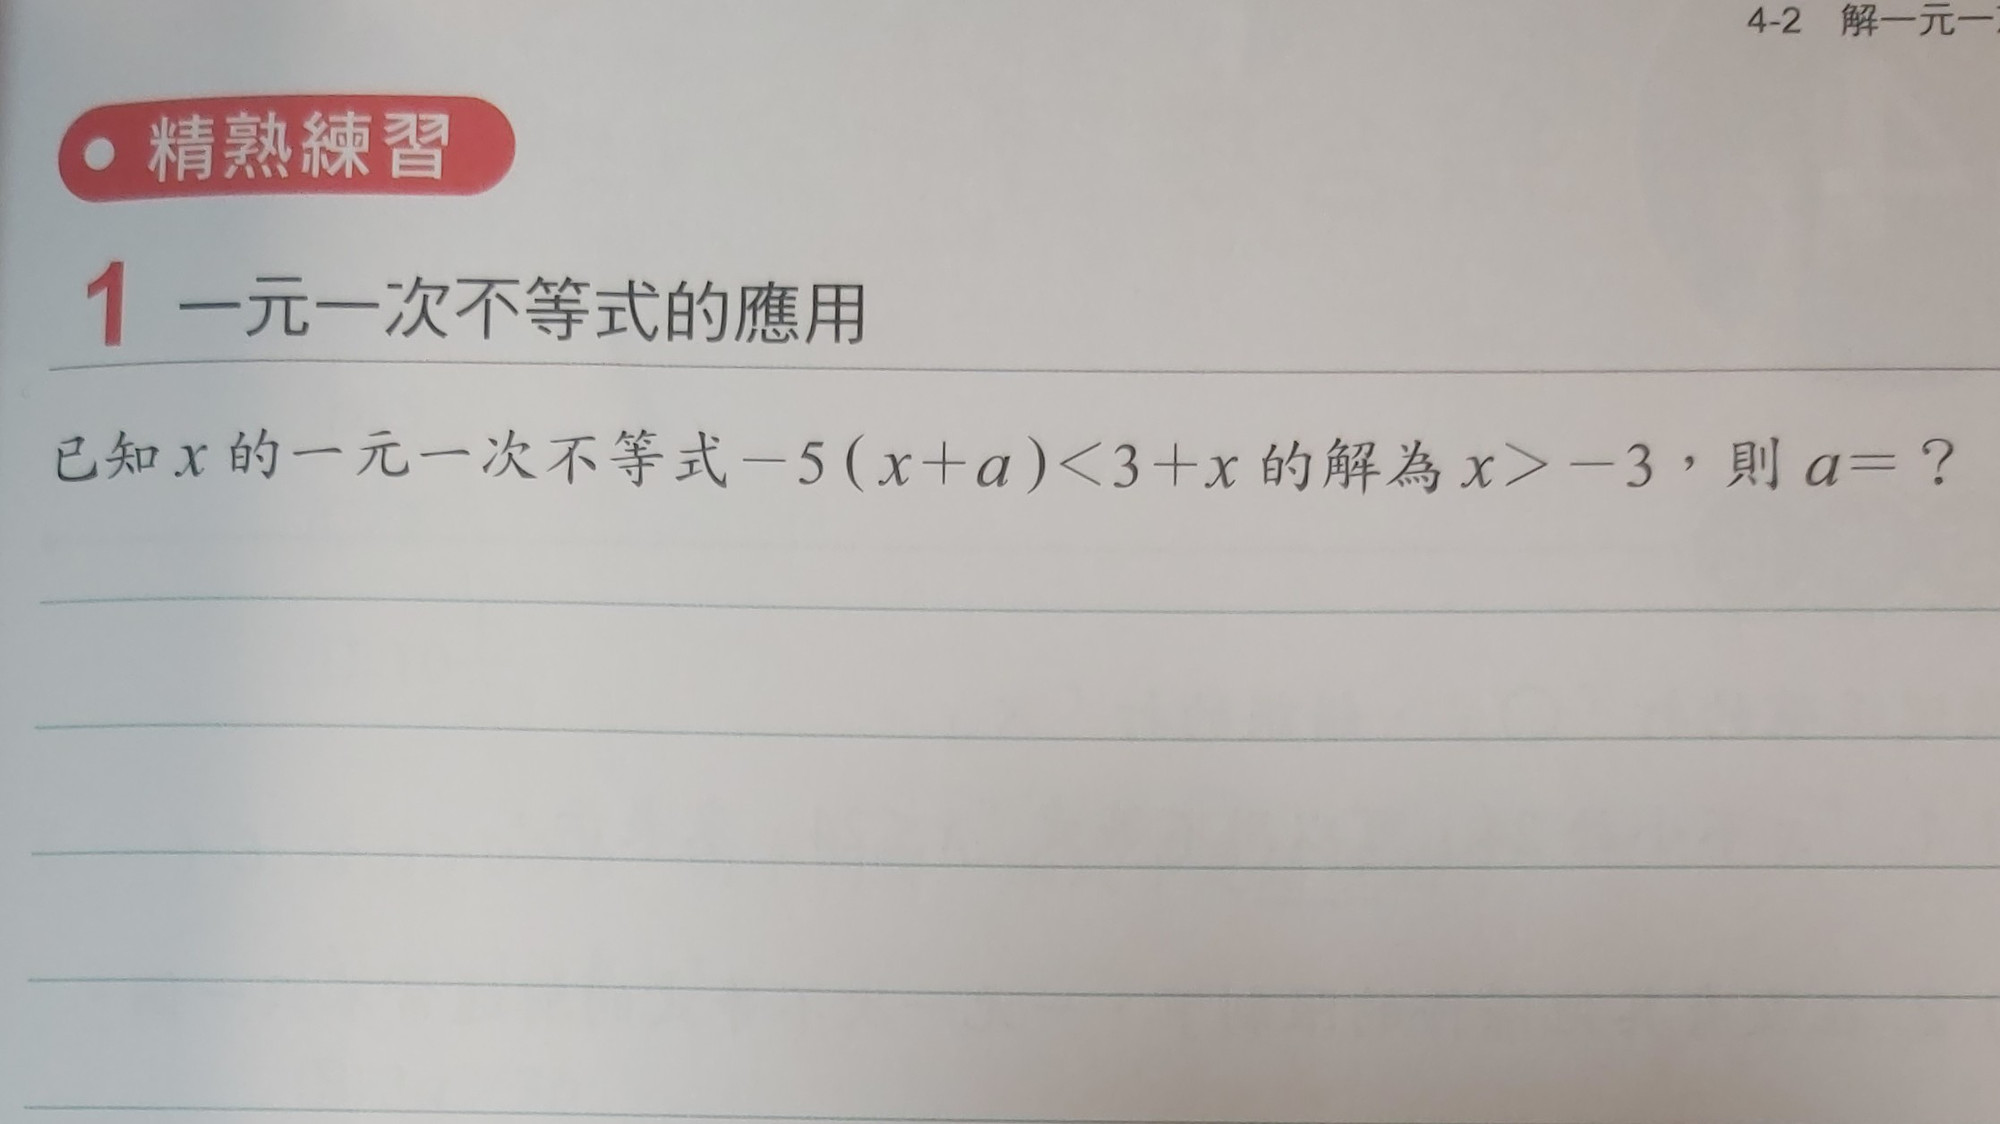 4-2 解一元一
精熟練習
1 一元一次不等式的應用
已知x的一元一次不等式-5(x+a)<3+x的解為x>-3,則a=?